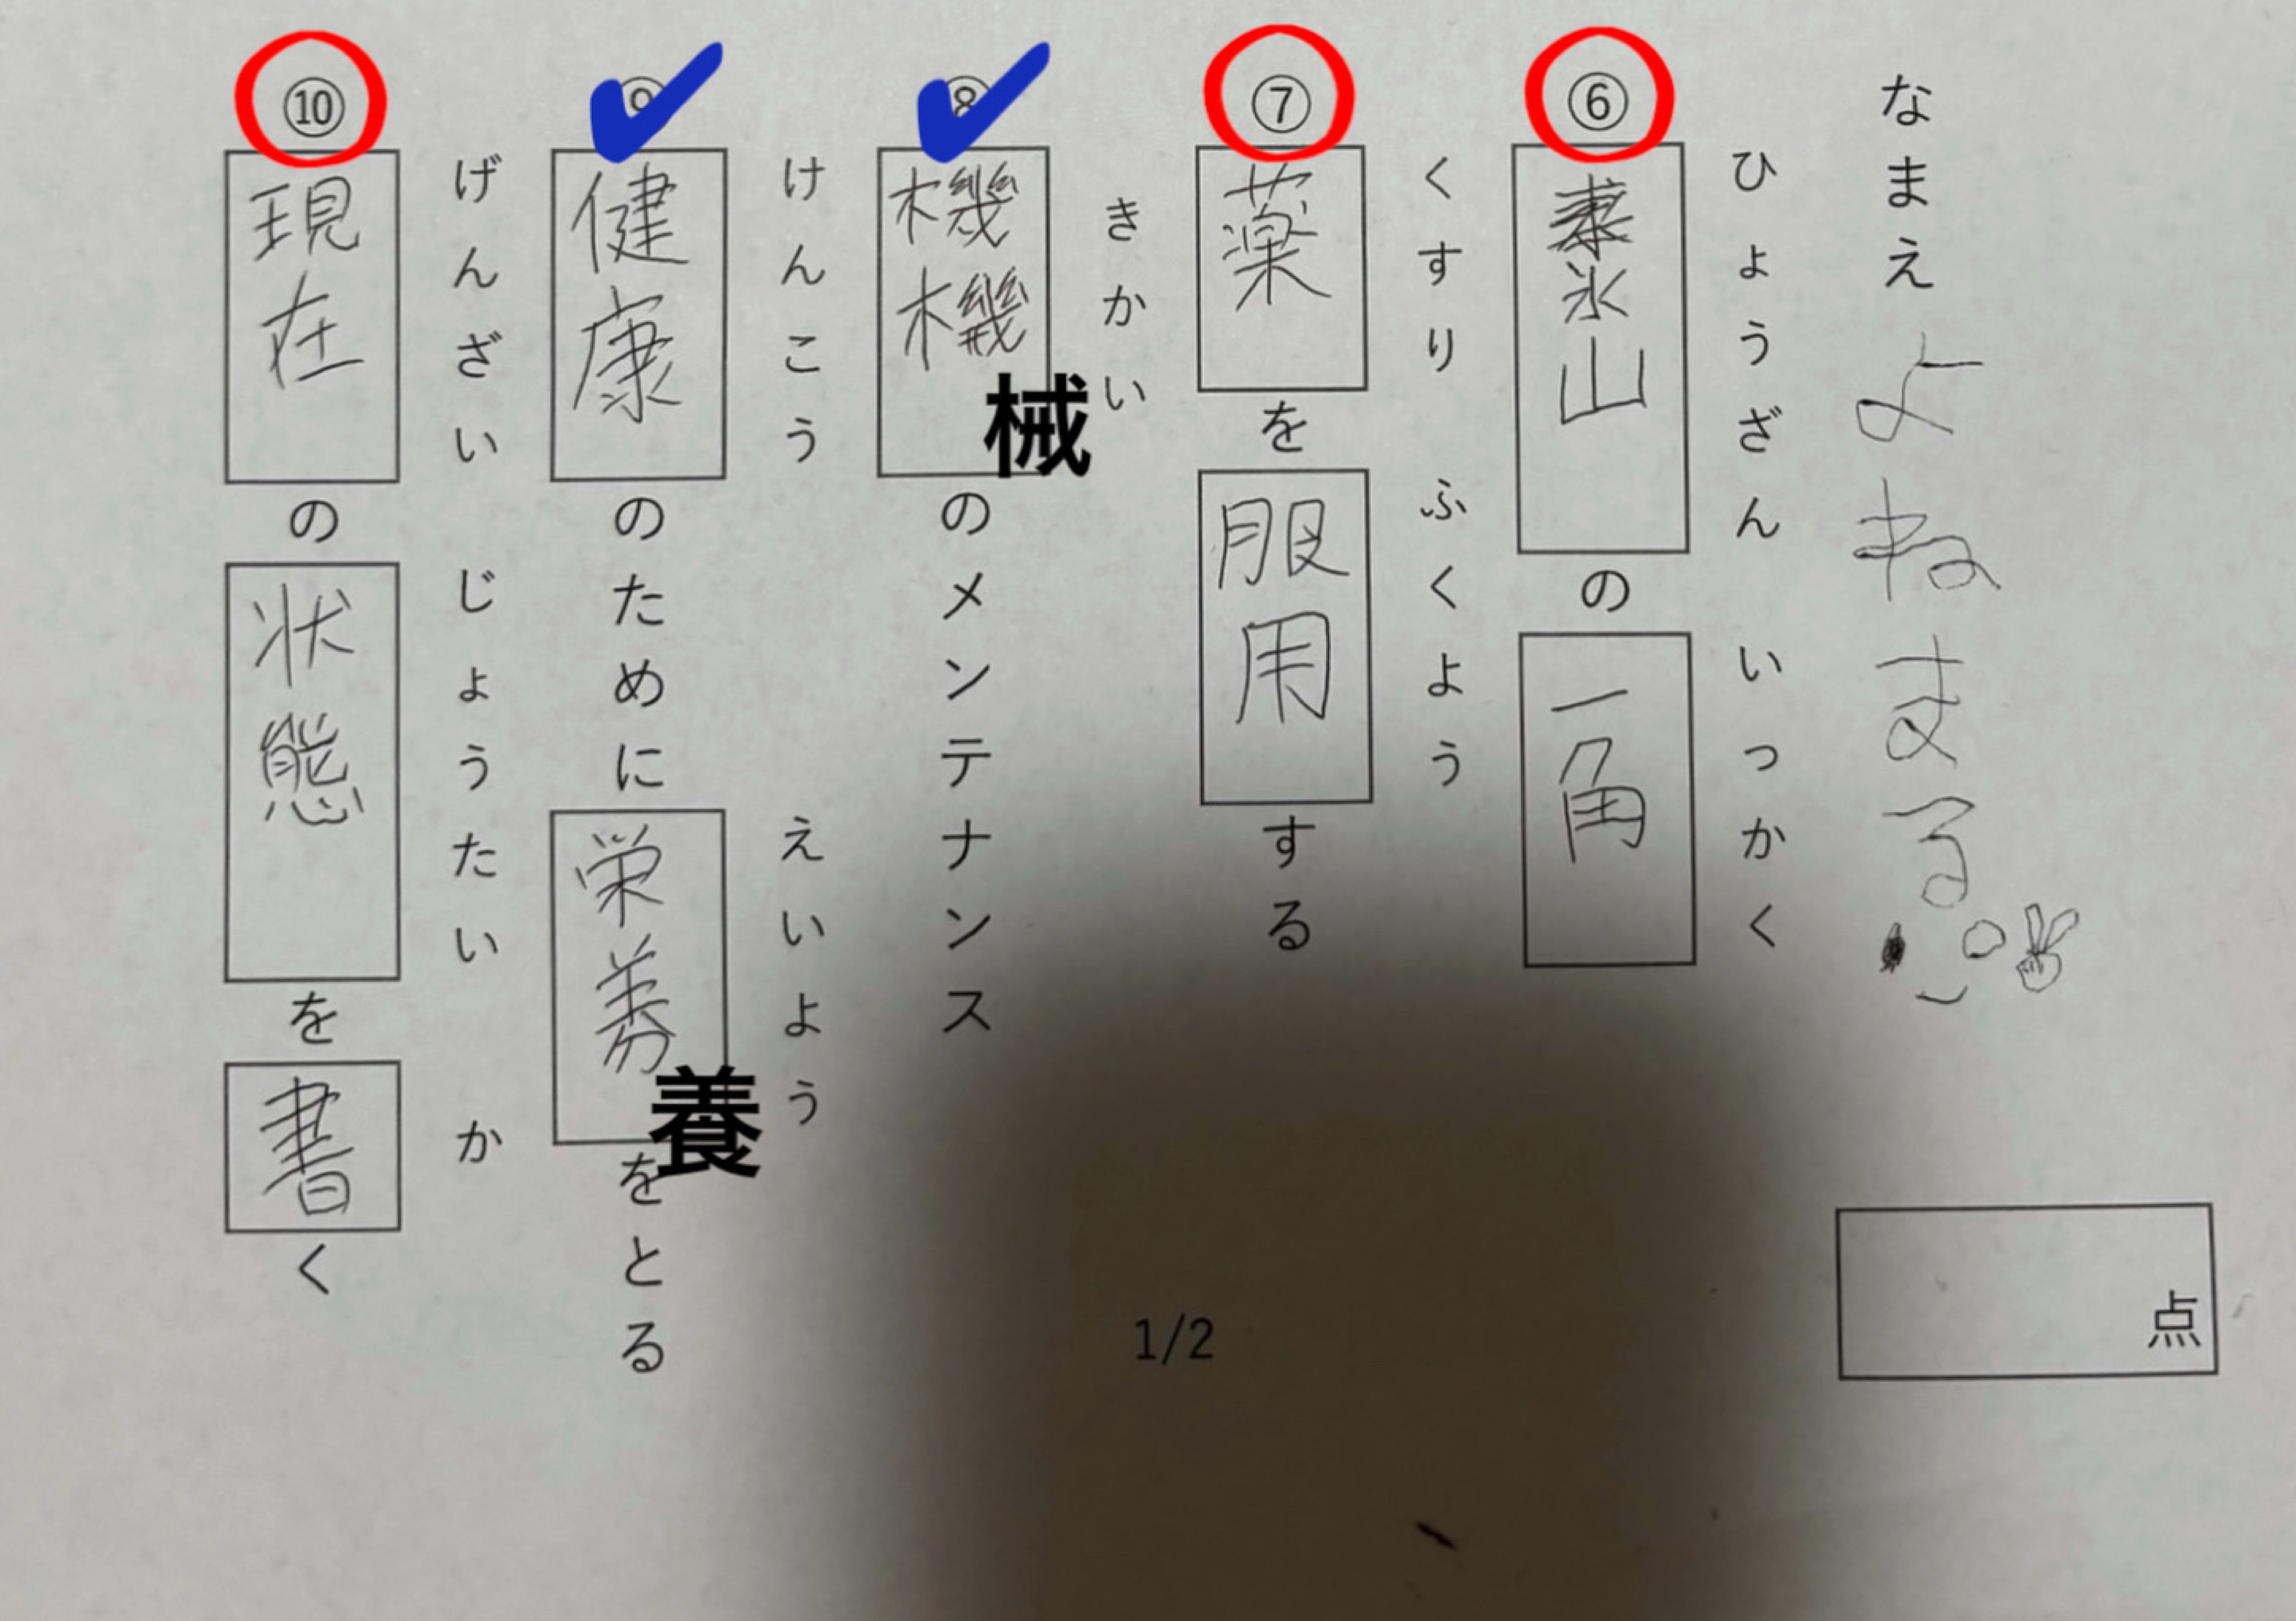 なまえ よねまる
ひょうざん いっかく
⑥ 氷山の一角
くすり ふくよう
⑦ 薬を服用する
きかい
⑧ 機機のメンテナンス
械
けんこう えいよう
⑨ 健康のために栄をとる
養
げんざい じょうたい か
⑩ 現在の状態を書く
点
1/2